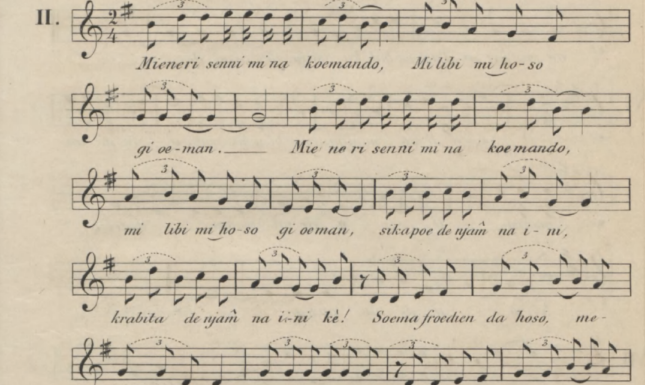 II.
Mieneri senni mi na koemando, Mi libi mi ho-so
gi oe-man. Mie ne ri senni mi na koemando,
mi libi mi ho-so gi oeman, sikapoe de njam̂ na i-ni,
krabita de njam̂ na i-ni kè! Soema froedien da hoso, me-